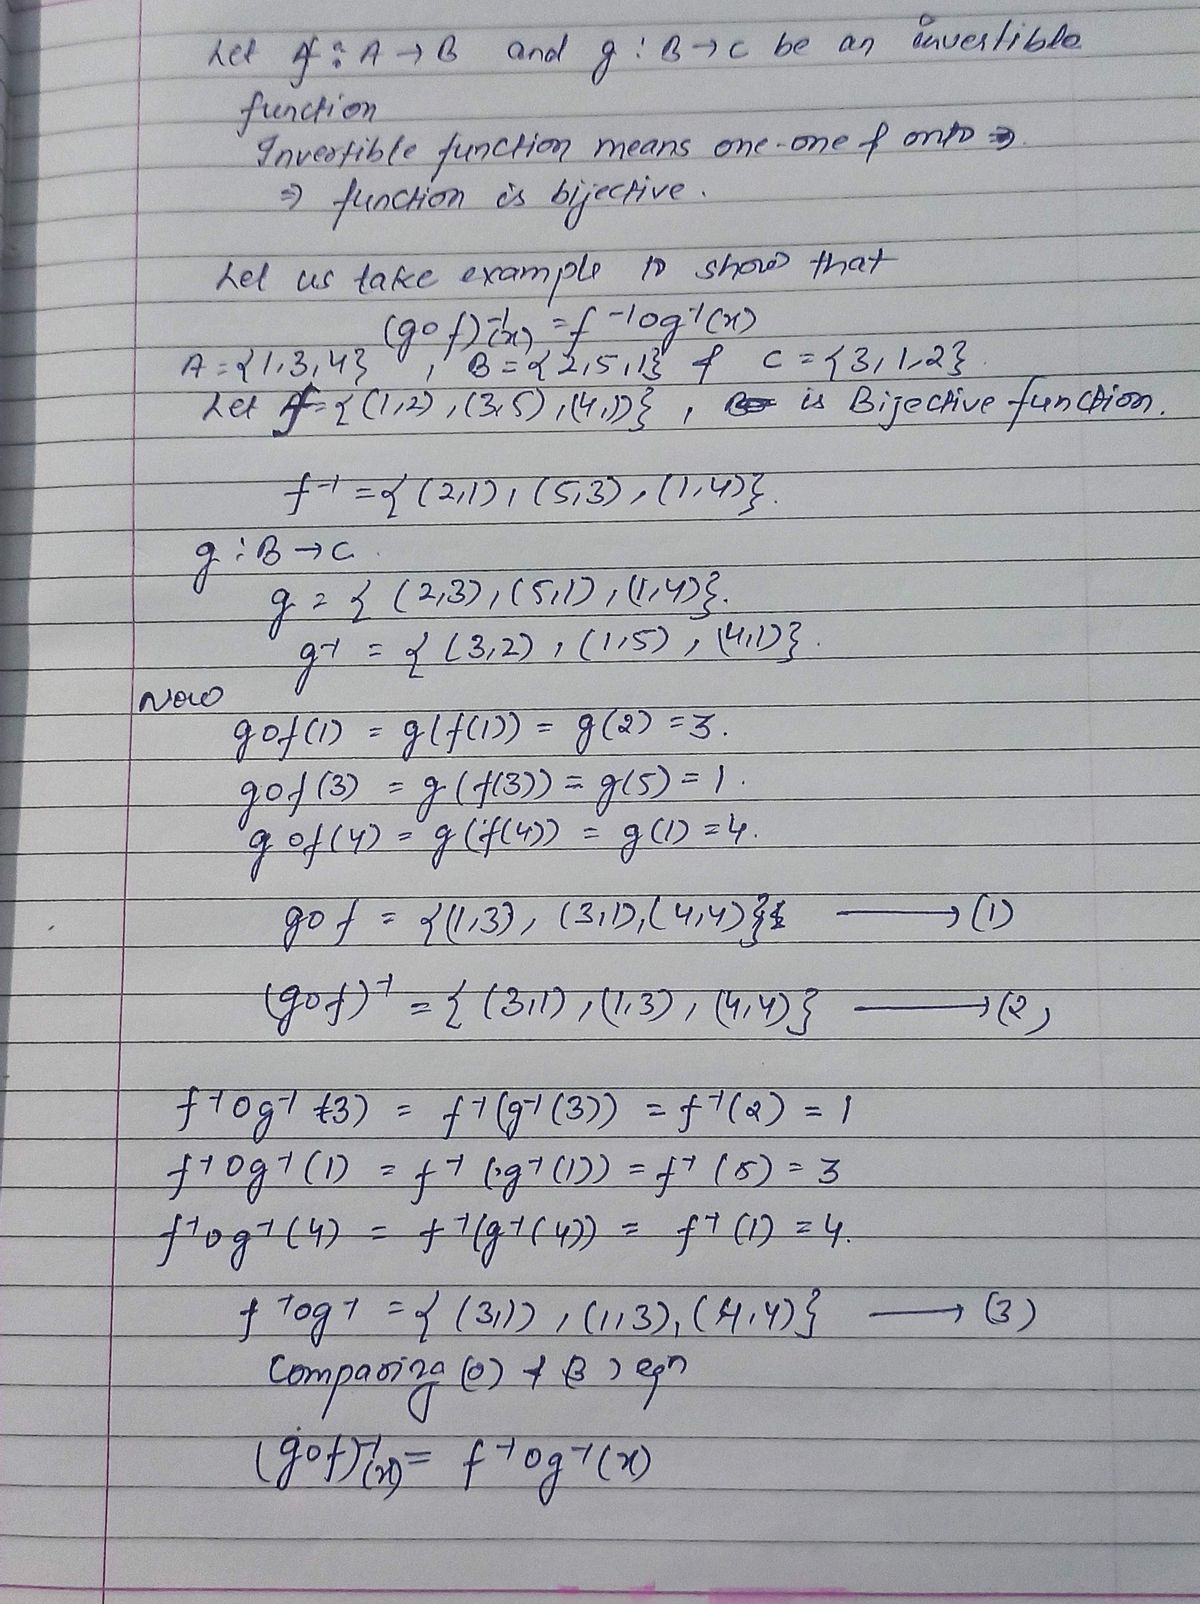 Let f : A → B and g : B → C be an invertible
function
Invertible function means one-one & onto ⇒
⇒ function is bijective.
Let us take example to show that
(gof)⁻¹(x) = f⁻¹og⁻¹(x)
A = {1,3,4} , B = {2,5,1} & C = {3,1,2}.
Let f = {(1,2), (3,5), (4,1)} , is Bijective function.
f⁻¹ = {(2,1), (5,3), (1,4)}.
g : B → C.
g = {(2,3), (5,1), (1,4)}.
g⁻¹ = {(3,2), (1,5), (4,1)}.
Now
gof(1) = g(f(1)) = g(2) = 3.
gof(3) = g(f(3)) = g(5) = 1.
gof(4) = g(f(4)) = g(1) = 4.
gof = {(1,3), (3,1), (4,4)} → (1)
(gof)⁻¹ = {(3,1), (1,3), (4,4)} → (2)
f⁻¹og⁻¹(3) = f⁻¹(g⁻¹(3)) = f⁻¹(2) = 1
f⁻¹og⁻¹(1) = f⁻¹(g⁻¹(1)) = f⁻¹(5) = 3
f⁻¹og⁻¹(4) = f⁻¹(g⁻¹(4)) = f⁻¹(1) = 4.
f⁻¹og⁻¹ = {(3,1), (1,3), (4,4)} → (3)
Comparing (2) & (3) eqn
(gof)⁻¹(x) = f⁻¹og⁻¹(x)